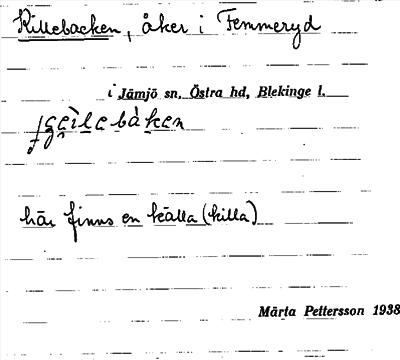 Killebacken, åker i Femmeryd
i Jämjö sn. Östra hd, Blekinge l.
här finns en källa (killa)
Märta Pettersson 1938